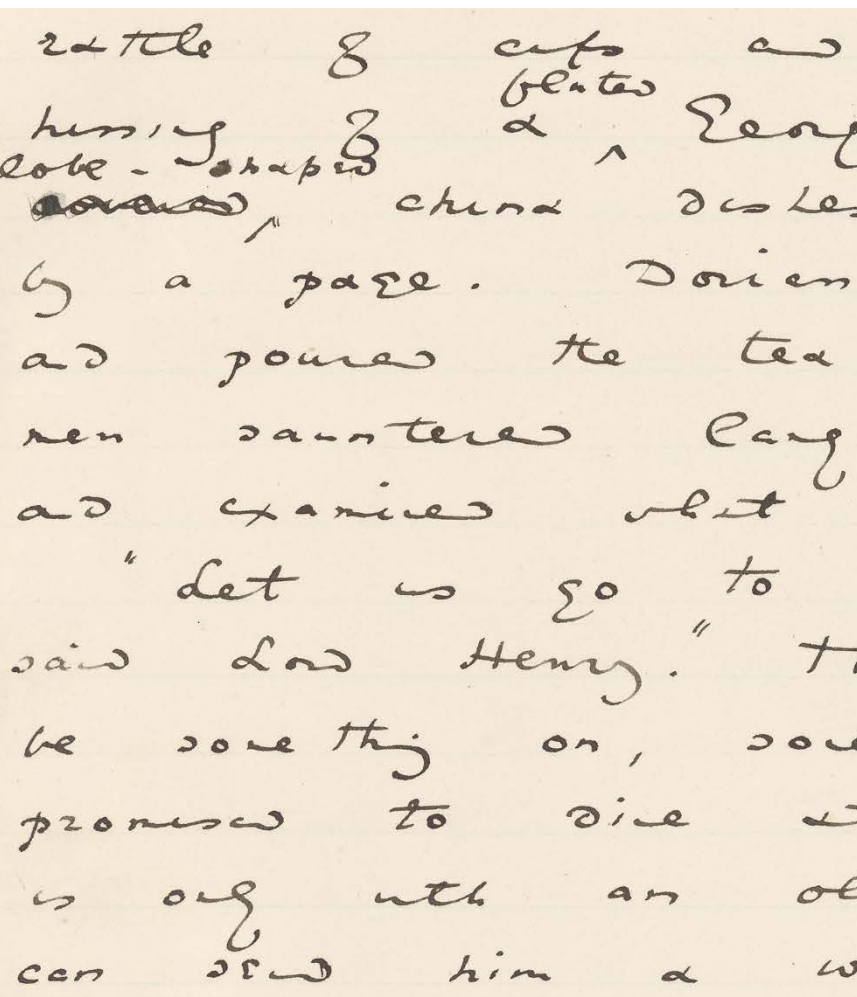 rattle of cups and
fluted
hissing of a ^ Georg
lobe-shaped
covered ^ china dishes
by a page. Dorian
and poured the tea
men sauntered lang
and examined what
"Let us go to
said Lord Henry." Th
be something on, some
promised to dine a
is only with an ol
can send him a w